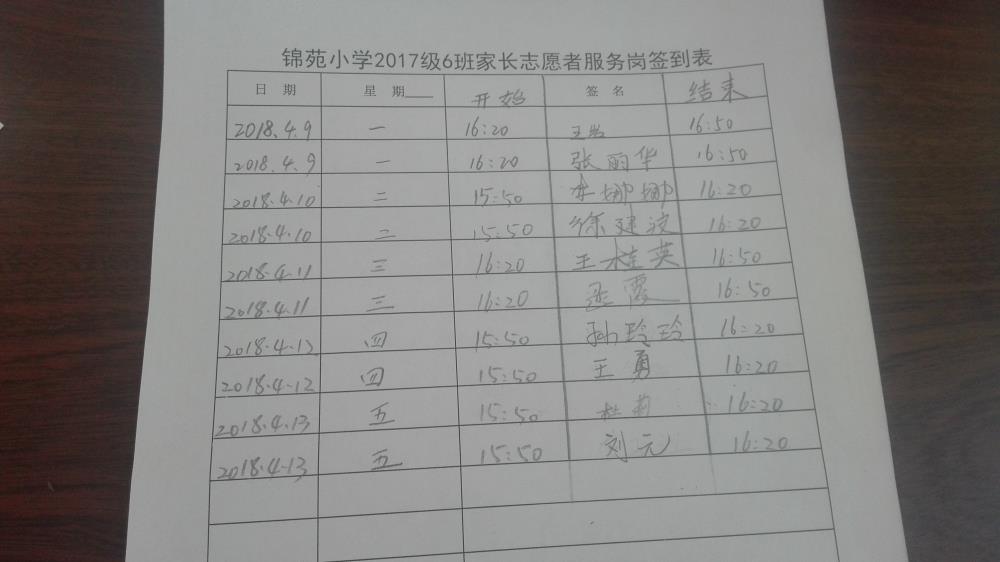 锦苑小学2017级6班家长志愿者服务岗签到表
日 期 星 期___ 开始 签 名 结束
2018.4.9 一 16:20 王 16:50
2018.4.9 一 16:20 张丽华 16:50
2018.4.10 二 15:50 李娜娜 16:20
2018.4.10 二 15:50 徐建波 16:20
2018.4.11 三 16:20 王桂英 16:50
2018.4.11 三 16:20 霞 16:50
2018.4.12 四 15:50 孙玲玲 16:20
2018.4.12 四 15:50 王勇 16:20
2018.4.13 五 15:50 杜莉 16:20
2018.4.13 五 15:50 刘元 16:20